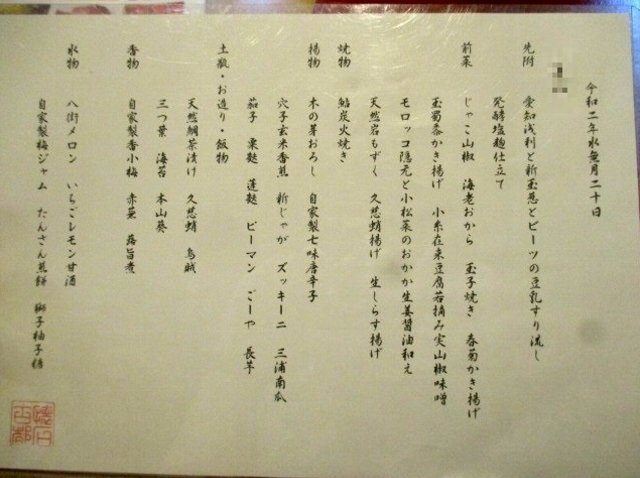 令和二年水無月二十日
先附 愛知浅利と新玉葱とビーツの豆乳すり流し
発酵塩麹仕立て
前菜 じゃこ山椒 海老おから 玉子焼き 春菊かき揚げ
玉蜀黍かき揚げ 小糸在来豆腐若摘み実山椒味噌
モロッコ隠元と小松菜のおかか生姜醤油和え
天然岩もずく 久慈蛸揚げ 生しらす揚げ
焼物 鮎炭火焼き
揚物 木の芽おろし 自家製七味唐辛子
穴子玄米香煎 新じゃが ズッキーニ 三浦南瓜
茄子 粟麩 蓬麩 ピーマン ごーや 長芋
土瓶・お造り・飯物
天然鯛茶漬け 久慈蛸 烏賊
三つ葉 海苔 本山葵
香物 自家製香小梅 赤蕪 蕗旨煮
水物 八街メロン いちごレモン甘酒
自家製梅ジャム たんさん煎餅 獅子柚子糖